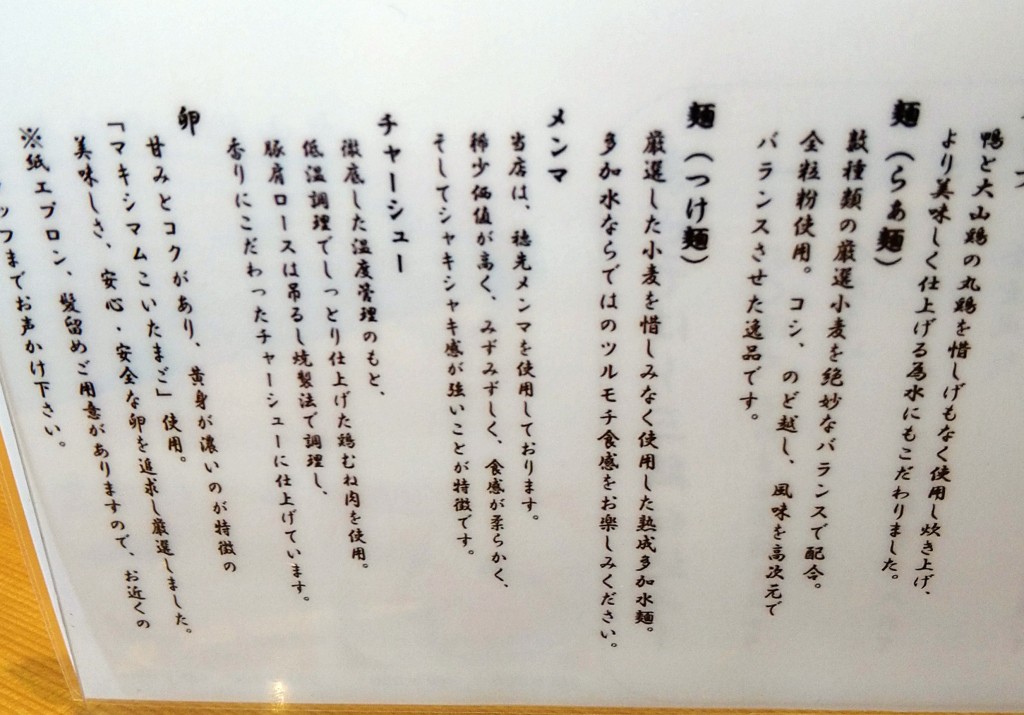 鴨と大山鶏の丸鶏を惜しげもなく使用し炊き上げ、
より美味しく仕上げる為水にもこだわりました。
麺（らぁ麺）
数種類の厳選小麦を絶妙なバランスで配合。
全粒粉使用。コシ、のど越し、風味を高次元で
バランスさせた逸品です。
麺（つけ麺）
厳選した小麦を惜しみなく使用した熟成多加水麺。
多加水ならではのツルモチ食感をお楽しみください。
メンマ
当店は、穂先メンマを使用しております。
稀少価値が高く、みずみずしく、食感が柔らかく、
そしてシャキシャキ感が強いことが特徴です。
チャーシュー
徹底した温度管理のもと、
低温調理でしっとり仕上げた鶏むね肉を使用。
豚肩ロースは吊るし焼製法で調理し、
香りにこだわったチャーシューに仕上げています。
卵
甘みとコクがあり、黄身が濃いのが特徴の
「マキシマムこいたまご」使用。
美味しさ、安心・安全な卵を追求し厳選しました。
※紙エプロン、髪留めご用意がありますので、お近くの
ッフまでお声かけ下さい。